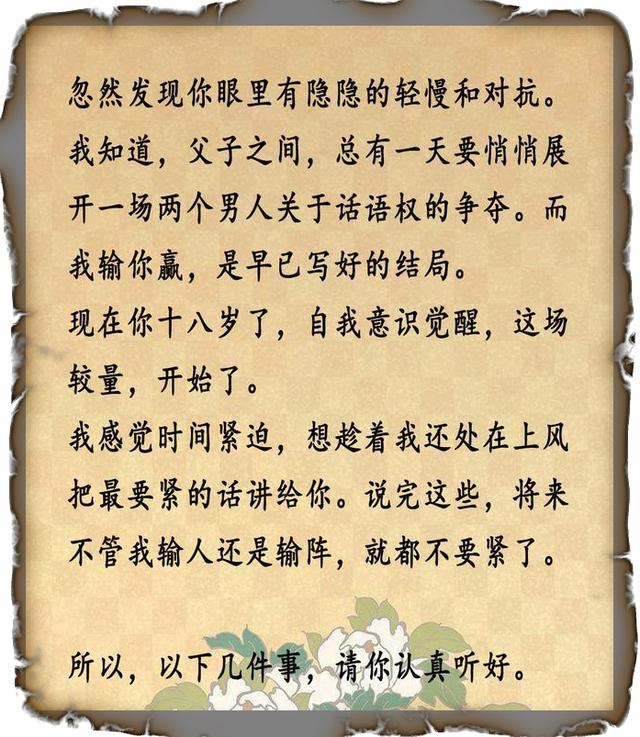 忽然发现你眼里有隐隐的轻慢和对抗。
我知道，父子之间，总有一天要悄悄展
开一场两个男人关于话语权的争夺。而
我输你赢，是早已写好的结局。
现在你十八岁了，自我意识觉醒，这场
较量，开始了。
我感觉时间紧迫，想趁着我还处在上风
把最要紧的话讲给你。说完这些，将来
不管我输人还是输阵，就都不要紧了。
所以，以下几件事，请你认真听好。